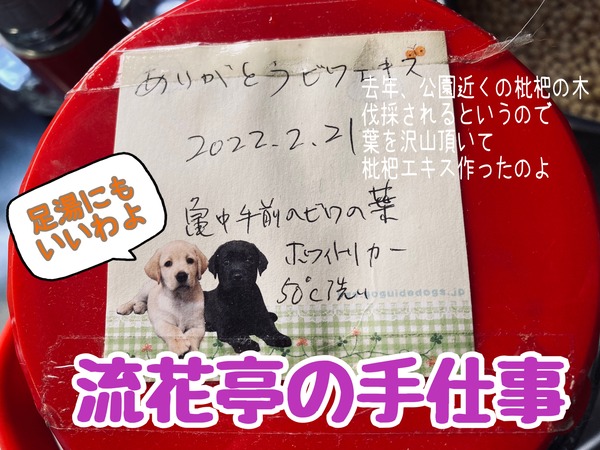 ありがとうビワエキス
去年、公園近くの枇杷の木
伐採されるというので
葉を沢山頂いて
枇杷エキス作ったのよ
2022.2.21
足湯にも
いいわよ
中午前のビワの葉
ホワイトリカー
50℃洗い
guidedogs.jp
流花亭の手仕事